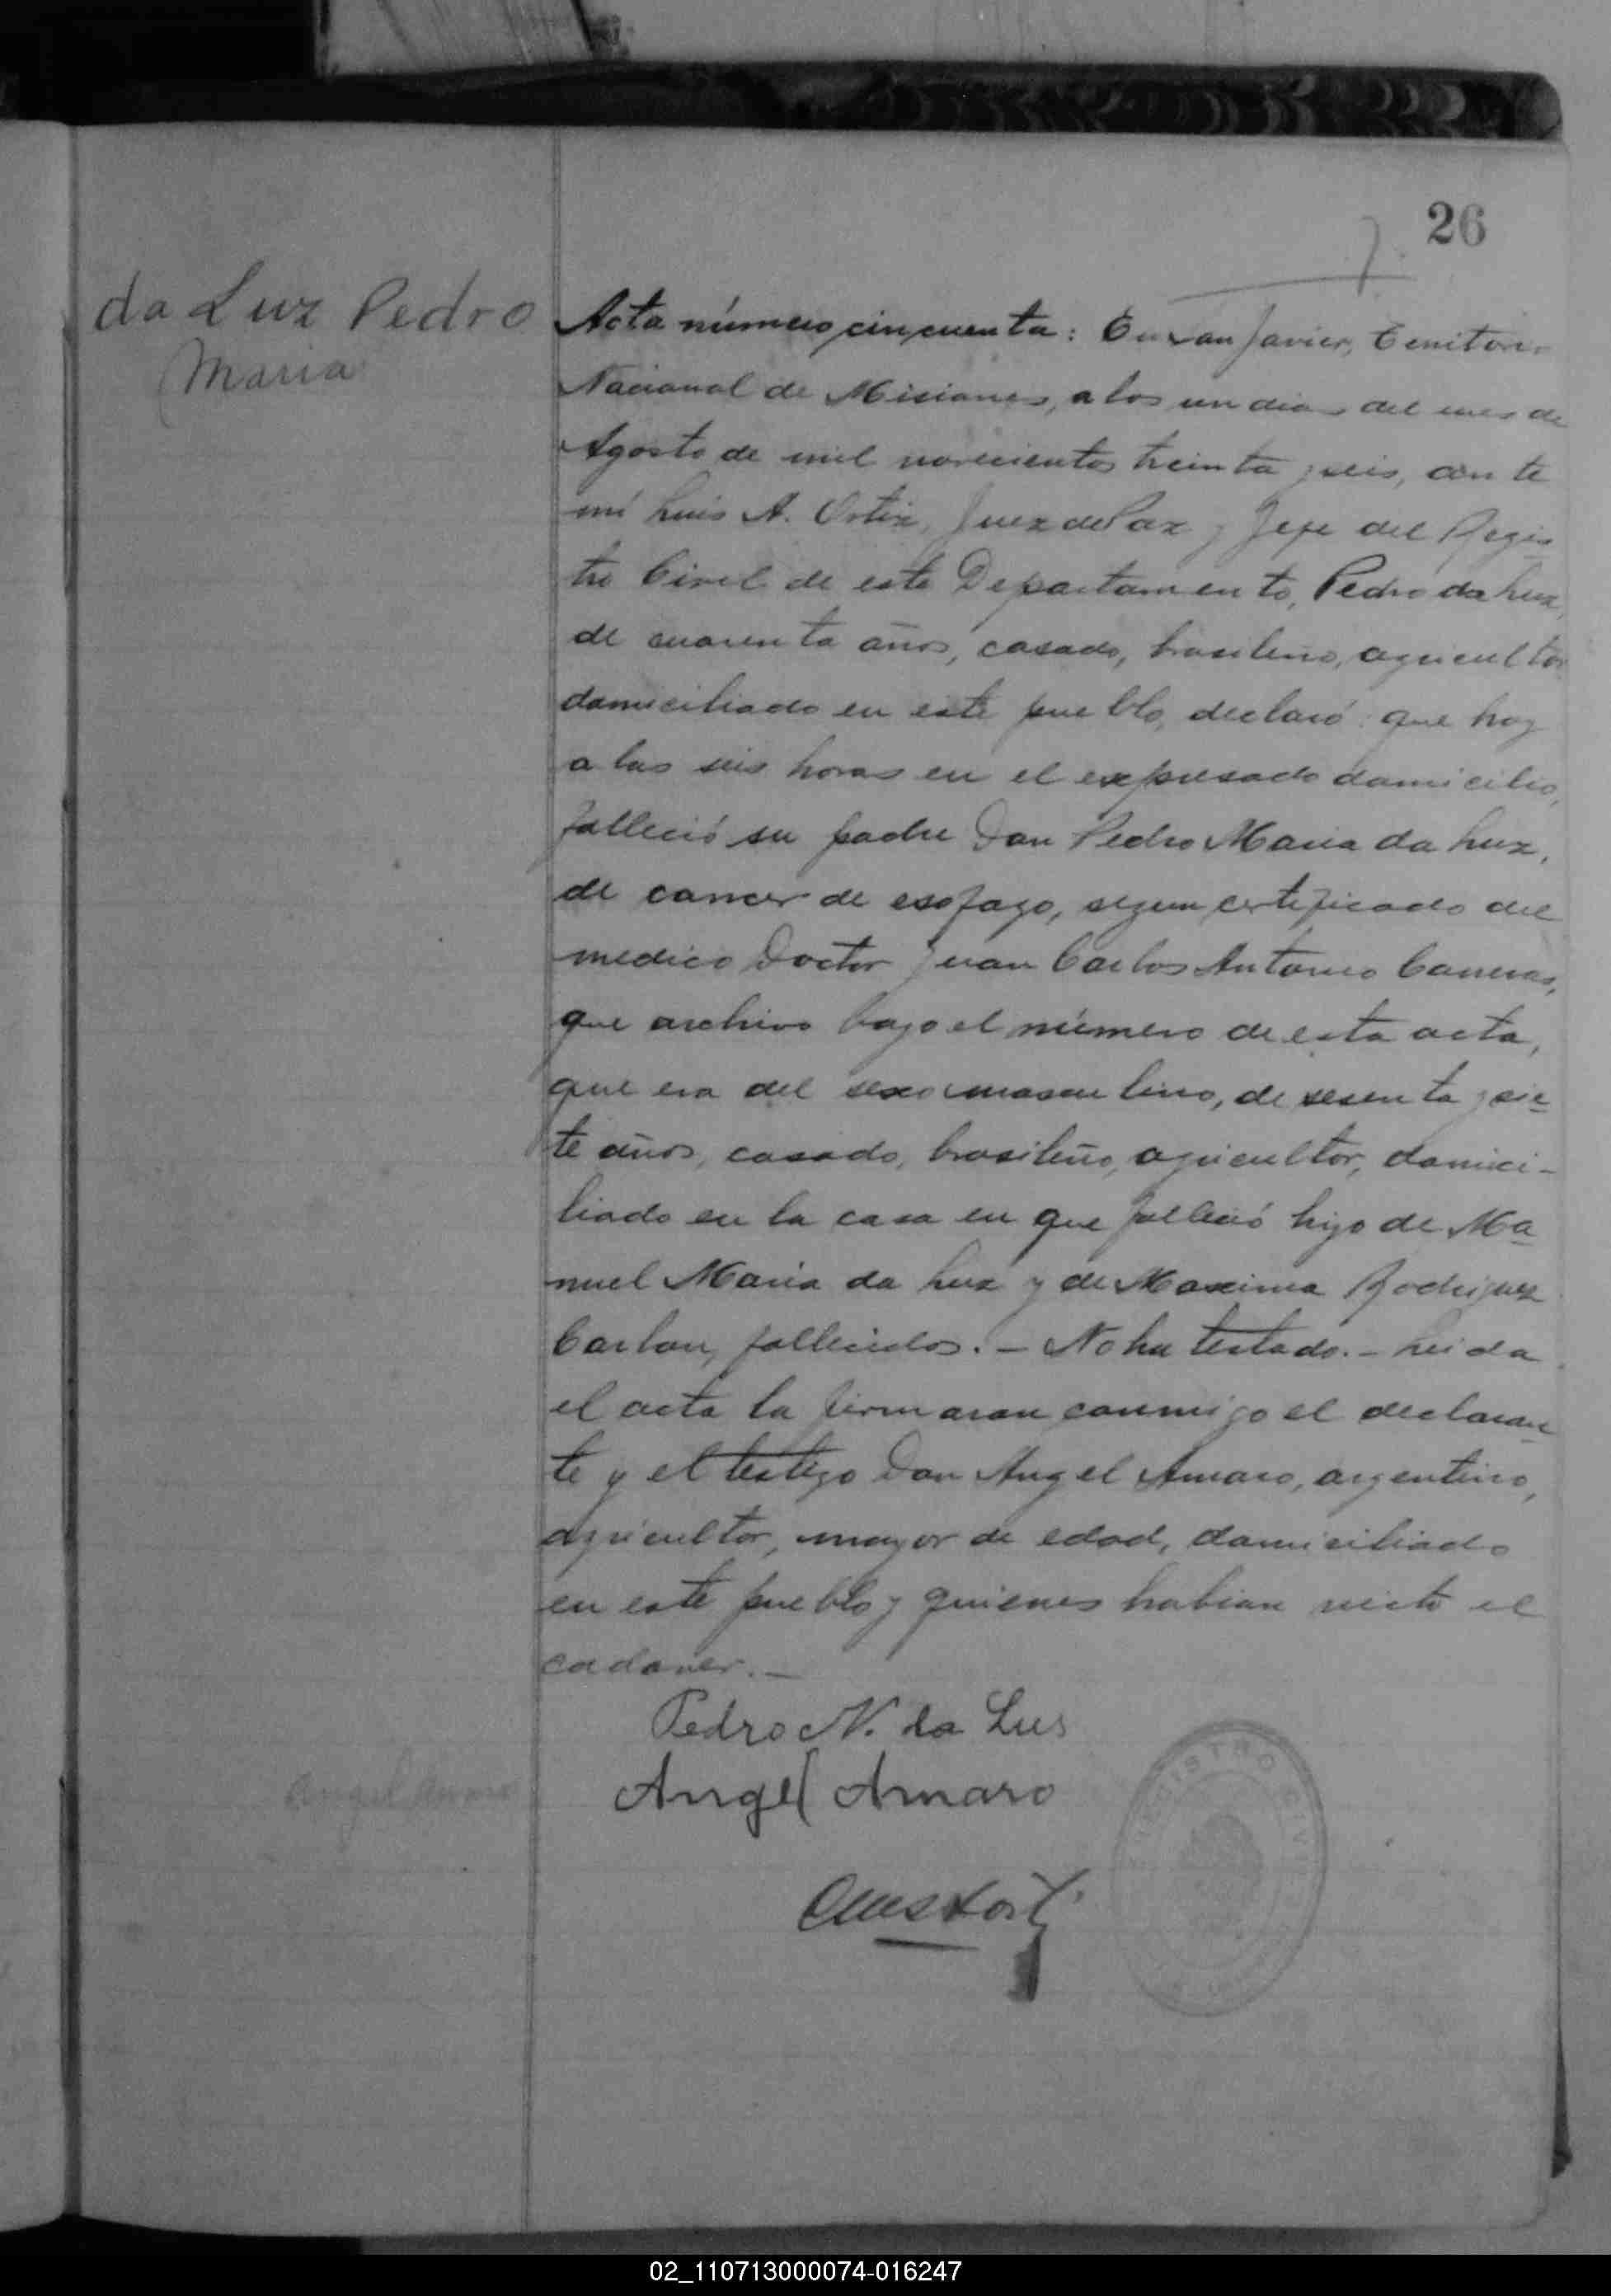 26
da Luz Pedro
Maria
Acta número cincuenta: En San Javier, Territorio
Nacional de Misiones, a los un dias del mes de
Agosto de mil novecientos treinta y seis, ante
mí Luis A. Ortiz, Juez de Paz y Jefe del Regis-
tro Civil de este Departamento, Pedro da Luz,
de cuarenta años, casado, brasileño, agricultor
domiciliado en este pueblo, declaró: que hoy
a las seis horas en el expresado domicilio,
falleció su padre Don Pedro Maria da Luz,
de cancer de esofago, segun certificado del
medico Doctor Juan Carlos Antonio Carreras,
que archivo bajo el número de esta acta,
que era del sexo masculino, de sesenta y sie-
te años, casado, brasileño, agricultor, domici-
liado en la casa en que falleció hijo de Ma-
nuel Maria da Luz y de Maxima Rodriguez
fallecidos. - No ha testado. - Leida
el acta la firmaron conmigo el declaran-
te y el testigo Don Angel Amaro, argentino,
agricultor, mayor de edad, domiciliado
en este pueblo y quienes habian visto el
cadaver. -
Pedro N. da Lus
Angel Amaro
Angel Amaro
REGISTRO CIVIL
02_110713000074-016247